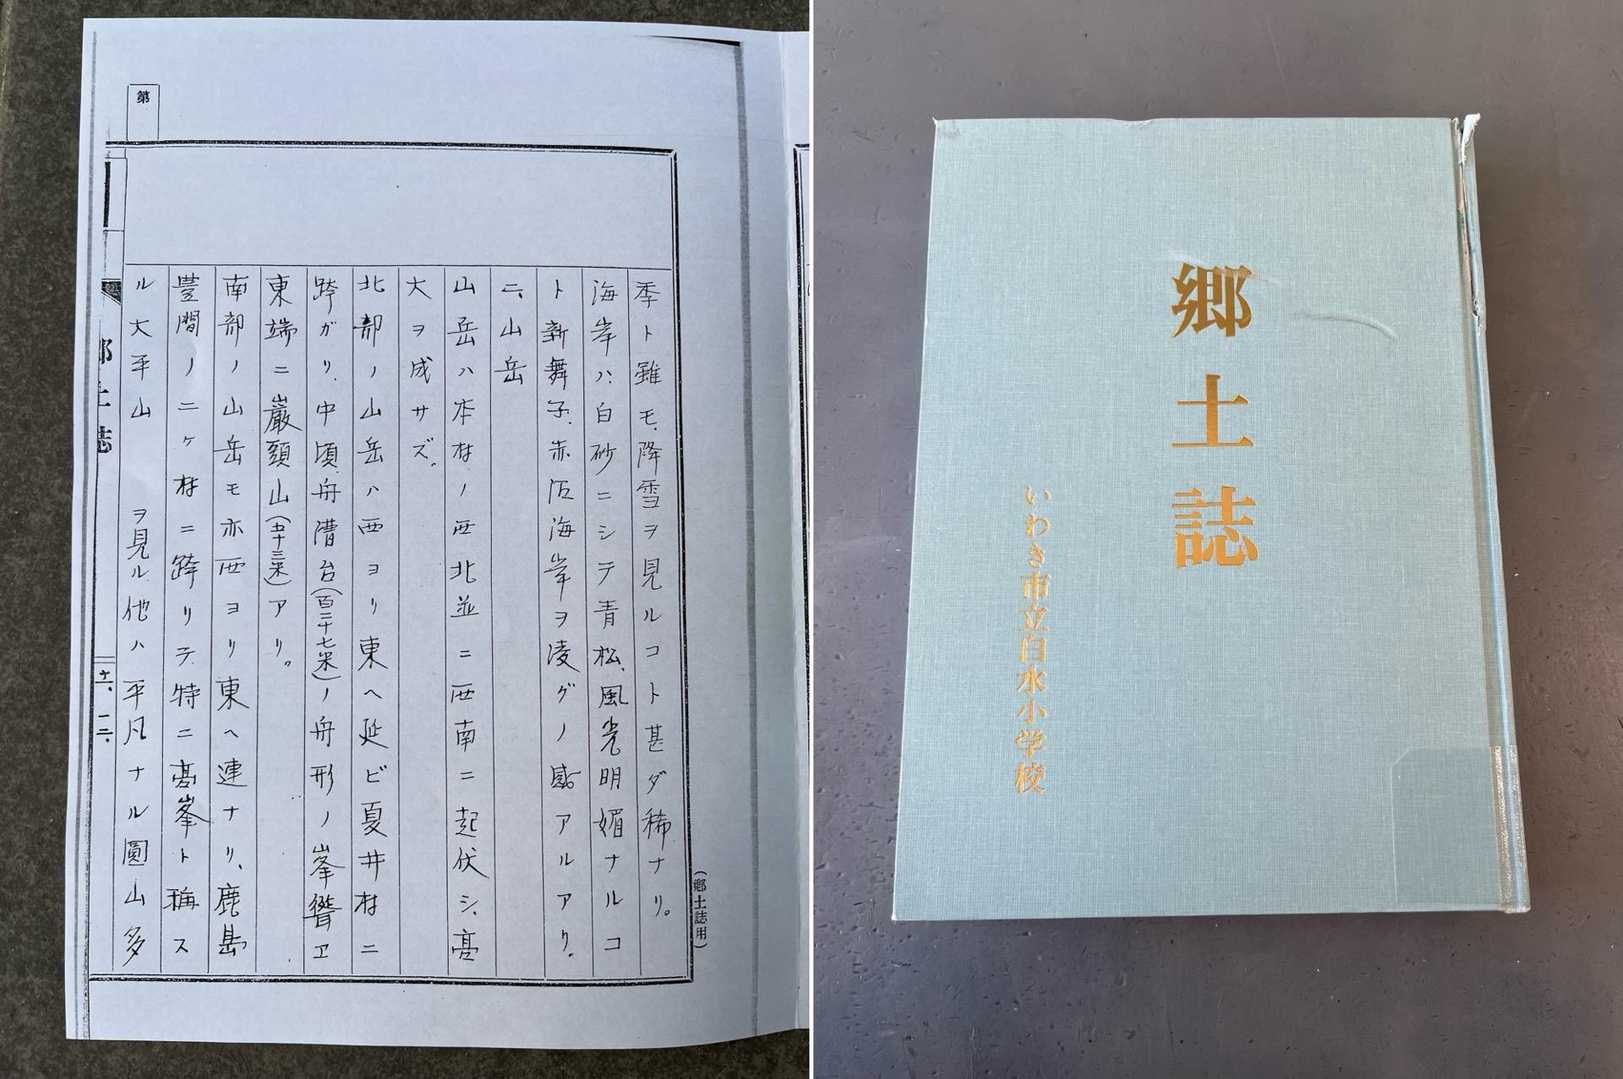 (郷土誌用)
季ト雖モ、降雪ヲ見ルコト甚ダ稀ナリ。
海岸ハ、白砂ニシテ青松、風光明媚ナルコ
ト新舞子、赤海岸ヲ凌グノ感アルアリ。
二、山岳
山岳ハ本村ノ西北並ニ西南ニ起伏シ、高
大ヲ成サズ。
北部ノ山岳ハ西ヨリ東ヘ延ビ夏井村ニ
跨ガリ、中頃、舟漕台(百二十七米)ノ舟形ノ峯聳ヱ
東端ニ巌頭山(五十三米)アリ。
南部ノ山岳モ亦西ヨリ東ヘ連ナリ、鹿島
豊間ノ二ケ村ニ跨リテ、特ニ高峯ト稱ス
ル大平山　ヲ見ル他ハ平凡ナル圓山多
第
郷土誌
郷土誌
いわき市立白水小学校